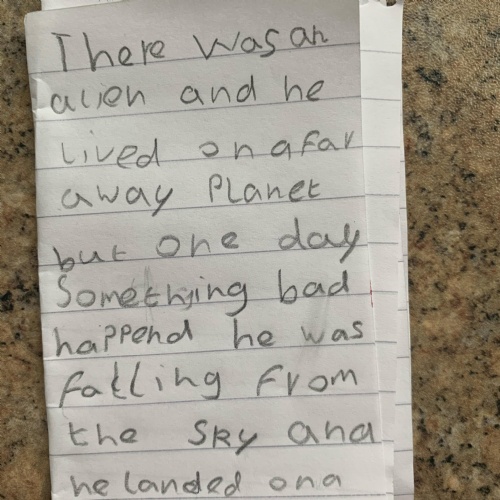 There was an
alien and he
lived on a far
away Planet
but one day
Something bad
happend he was
falling from
the sky and
he landed on a